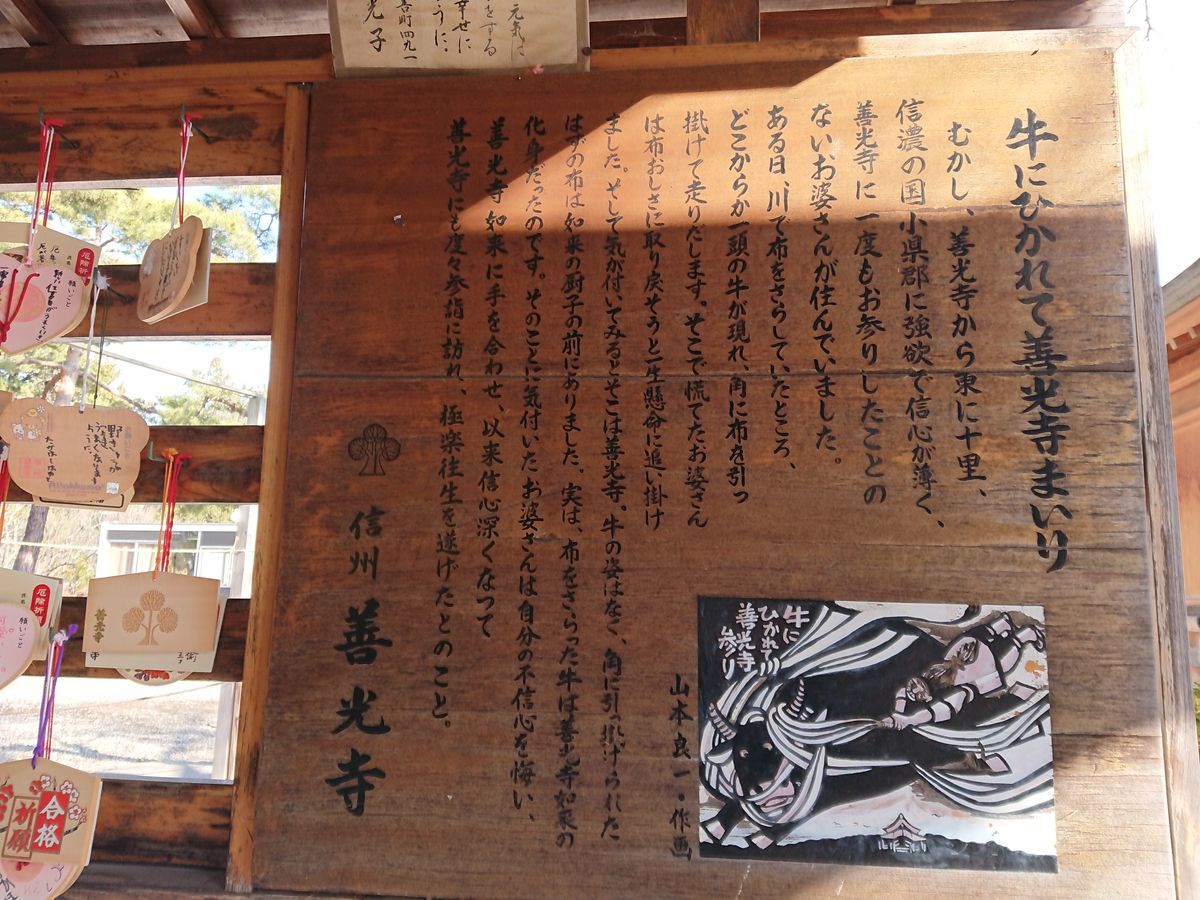 牛にひかれて善光寺まいり
むかし、善光寺から東に十里、
信濃の国小県郡に強欲で信心が薄く、
善光寺に一度もお参りしたことの
ないお婆さんが住んでいました。
ある日、川で布をさらしていたところ、
どこからか一頭の牛が現れ、角に布を引っ
掛けて走りだします。そこで慌てたお婆さん
は布おしさに取り戻そうと一生懸命に追い掛け
ました。そして気が付いてみるとそこは善光寺。牛の姿はなく、角に引っ掛けられた
はずの布は如来の厨子の前にありました。実は、布をさらった牛は善光寺如来の
化身だったのです。そのことに気付いたお婆さんは自分の不信心を悔い、
善光寺如来に手を合わせ、以来信心深くなって
善光寺にも度々参詣に訪れ、極楽往生を遂げたとのこと。
信州善光寺
牛に
ひかれて
善光寺
参り
山本良一・作画
元気に
をする
幸せに
うに、
吾町四九一
光子
厄除祈
願いごと
厄除祈
願いごと
善光寺
合格
祈願